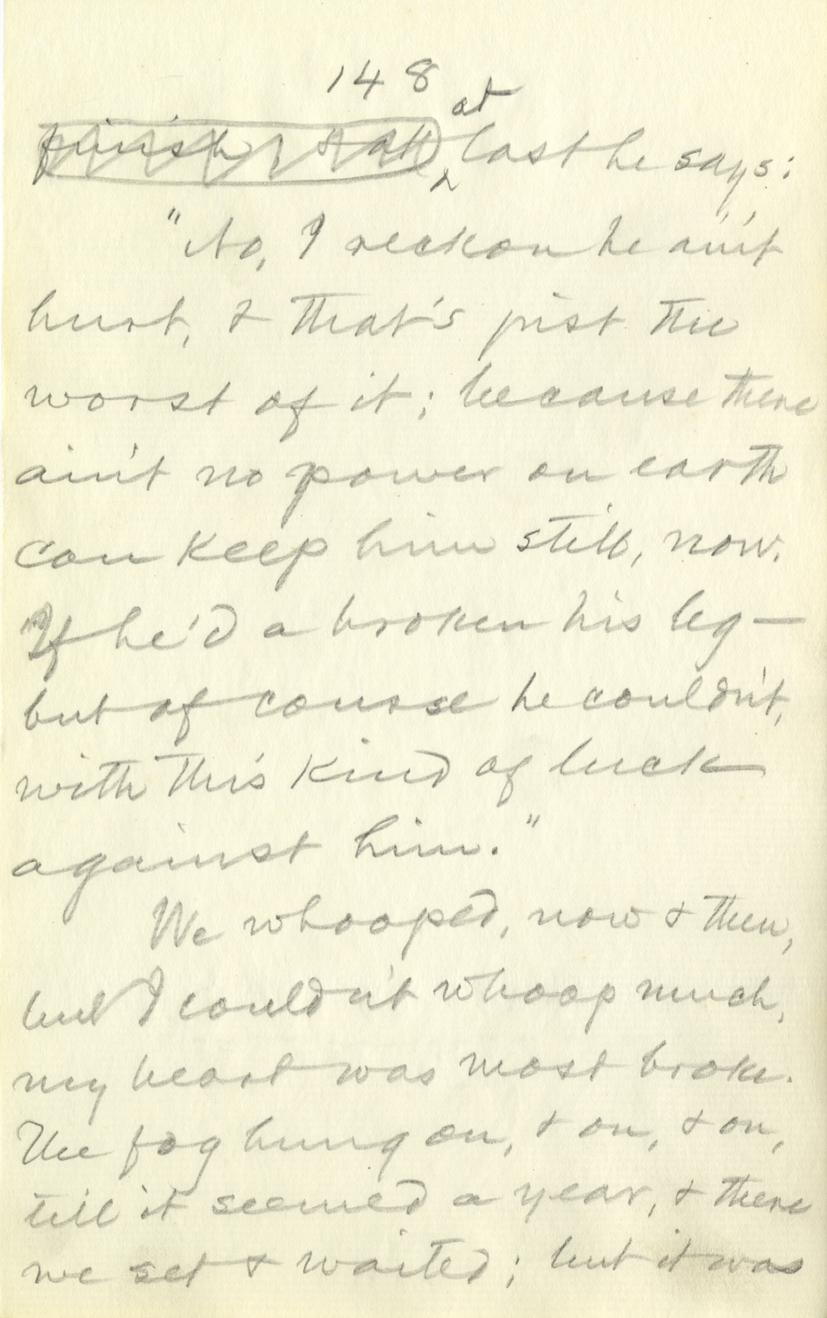 148
at
last he says:
"No, I reckon he ain't
hurt, & that's jist the
worst of it; because there
ain't no power on earth
can keep him still, now.
If he'd a broken his leg—
but of course he couldn't,
with this kind of luck
against him."
We whooped, now & then,
but I couldn't whoop much,
my heart was most broke.
The fog hung on, & on, & on,
till it seemed a year, & there
we set & waited; but it was